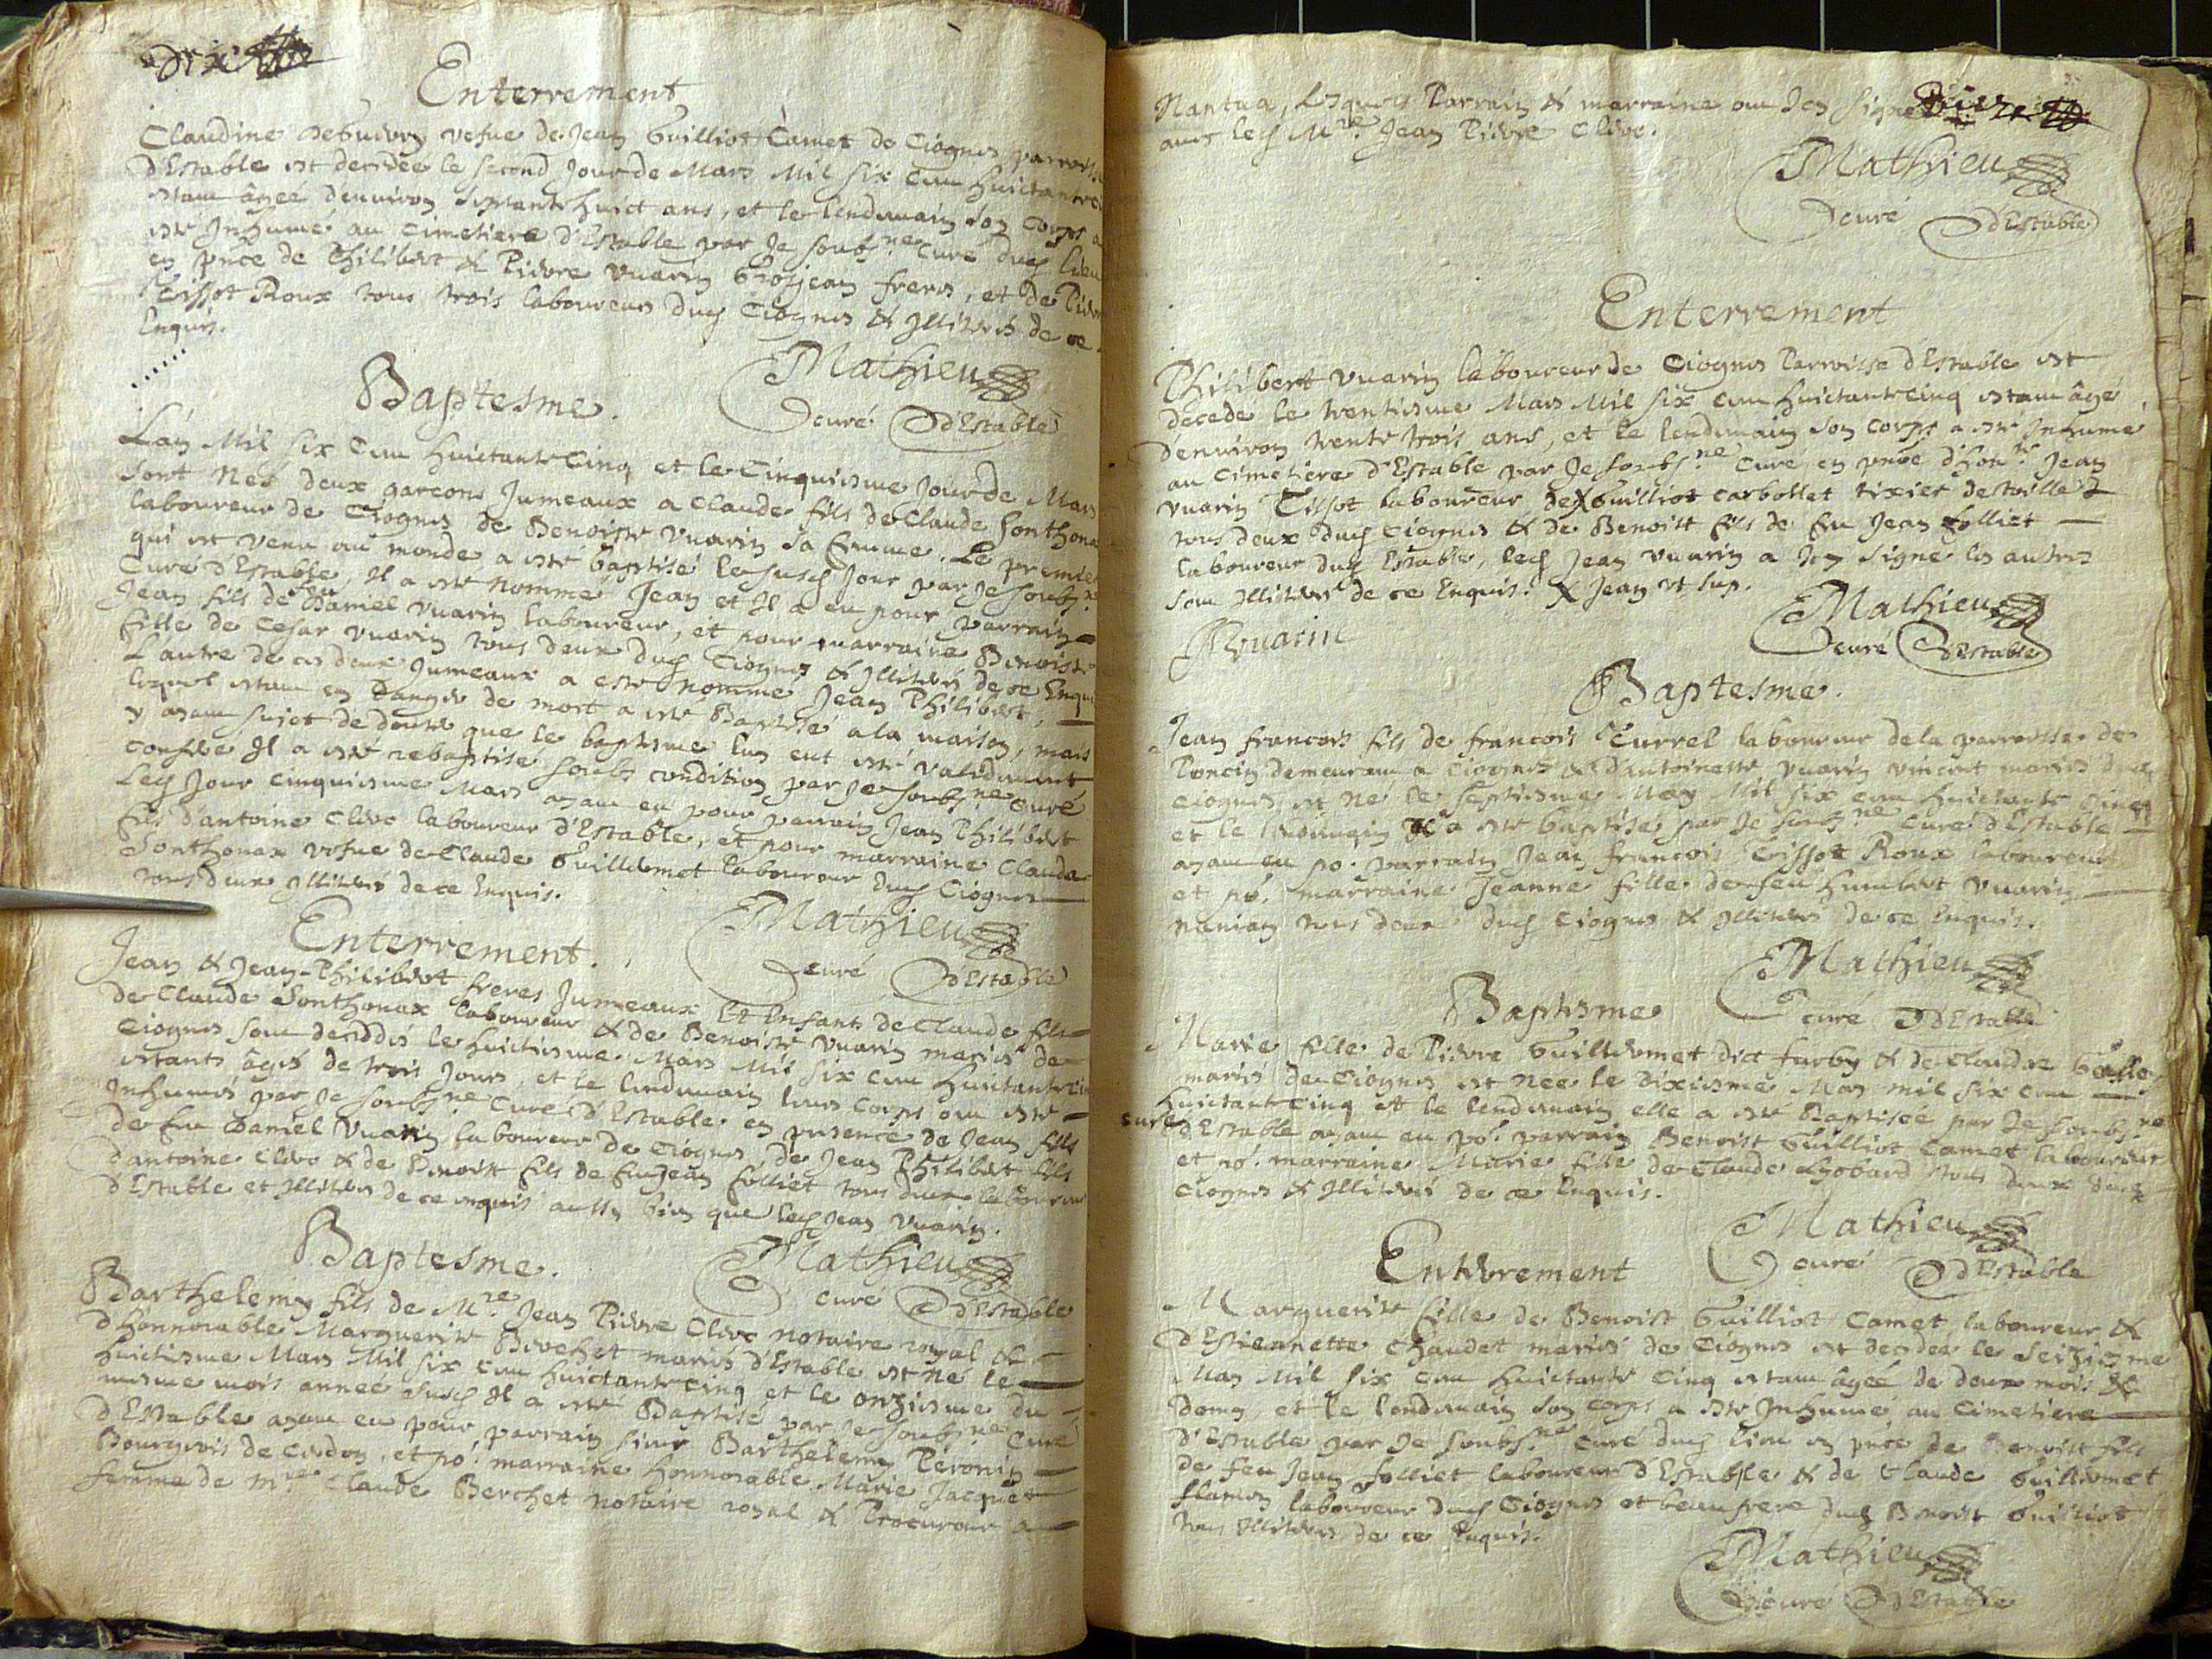 dix
Enterrement
Claudine Debuivry vefve de Jean Guilliot Camet de Ciognes parroisse
d'Estable est decedée le second Jour de Mars Mil six cent huictante
estant âgée d'environ septante huict ans, et le lendemain son corps a
esté Inhumé au Cimetiere d'Estable par Je soubs.né Curé dud. lieu
en pnce de Philibert & Pierre Vuarin Grosjean freres, et de Pierre
Tissot Roux tous trois laboureurs dud. Ciognes & Illiterés de ce
Enquis.
Mathieu
curé d'Estable
Baptesme.
L'an Mil six cent huictante Cinq et le Cinquiesme Jour de Mars
sont Nés deux garcons Jumeaux a Claude fils de Claude Sonthonax
laboureur de Ciognes & de Benoiste Vuarin sa femme. Le premier
qui est venu au monde a esté baptisé led. susd. Jour par Je soubs.né
Curé d'Estable, Il a esté nommé Jean et Il a eu pour parrain
Jean fils de feu Daniel Vuarin laboureur, et pour marraine Benoiste
fille de Cesar Vuarin tous deux dud. Ciognes & Illiterés de ce Enquis
L'autre de ces deux Jumeaux a esté nommé Jean Philibert,
lequel estant en danger de mort a esté Baptisé a la maison, mais
y ayant sujet de doute que le baptesme luy eut esté validement
conferé Il a esté rebaptisé soubs condition par Je soubs.né curé
Led. Jour cinquiesme Mars ayant eu pour parrain Jean Philibert
fils d'antoine Clerc laboureur d'Estable, et pour marraine Claudaz
Sonthonax vefve de Claude Guillermet laboureur dud. Ciognes
tous deux Illiterés de ce Enquis.
Mathieu
curé d'Estable
Enterrement.
Jean & Jean-Philibert freres Jumeaux Et Enfants de Claude fils
de Claude Sonthonax laboureur & de Benoiste Vuarin mariés de
Ciognes sont decedés le huictiesme Mars Mil six cent huictante Cinq
estants âgés de trois Jours, et le lendemain leurs corps ont esté
Inhumés par Je soubs.né Curé d'Estable en presence de Jean fils
de feu Daniel Vuarin laboureur de Ciognes, de Jean Philibert fils
d'antoine Clerc & de Benoist fils de feu Jean folliet tous deux laboureurs
d'Estable et Illiterés de ce enquis aussy bien que led. Jean Vuarin.
Mathieu
curé d'Estable
Baptesme.
Barthelemy fils de M.re Jean Pierre Clerc notaire royal &
d'honnorable Marguerite Berchet mariés d'Estable est né le
huictiesme Mars Mil six cent huictante Cinq et le onziesme du
mesme mois année susd. Il a esté Baptisé par Je soubs.né Curé
d'Estable ayant eu pour parrain sieur Barthelemy Peronin
Bourgeois de Cerdon, et po.r marraine honnorable Marie Jacquet
femme de m.re Claude Berchet notaire royal & Procureur a
Nantua, Lesquels Parrain & marraine ont Icy signé
avec led. M.re Jean Pierre Clerc.
Mathieu
curé d'Estable
Enterrement
Philibert Vuarin laboureur de Ciognes Parroisse d'Estable est
decedé le trentiesme Mars Mil six cent huictante cinq estant âgé
d'environ trente trois ans, et le lendemain son corps a esté Inhumé
au Cimetiere d'Estable par Je soubs.né Curé en pnce d'hon.te Jean
Vuarin Tissot laboureur de X Guilliot carbollet tixier de toille
tous deux dud. Ciognes & de Benoist fils de feu Jean folliet
laboureur dud. Estable, led. Jean Vuarin a Icy signé les autres
sont Illiterés de ce Enquis. X Jean ut sup.
Jvuarin
Mathieu
curé d'Estable
Baptesme.
Jean francois fils de francois Currel laboureur de la parroisse de
Poncin demeurant a Ciognes & d'antoinette Vuarin Vincent mariés dud.
Ciognes est né le septiesme May Mil six cent huictante cinq
et le lendemain Il a esté baptisé par Je soubs.né Curé d'Estable
ayant eu po.r parrain Jean francois Tissot Roux laboureur
et po.r marraine Jeanne fille de feu humbert Vuarin
nanian tous deux dud. Ciognes & Illiterés de ce Enquis.
Mathieu
curé d'Estable
Baptesme
Marie fille de Pierre Guillermet dict furby & de Claudaz
mariés de Ciognes est née le dixiesme May mil six cent
huictante Cinq et le lendemain elle a esté Baptisée par Je soubs.né
curé d'Estable ayant eu po.r parrain Benoist Guilliot Camet laboureur
et po.r marraine Marie fille de Claude Lyobard tous deux dud.
Ciognes & Illiterés de ce Enquis.
Mathieu
curé d'Estable
Enterrement
Marguerite fille de Benoist Guilliot Camet laboureur &
d'Estiennette Chaudet mariés de Ciognes est decedée le seiziesme
May Mil six cent huictante Cinq estant âgée de deux mois &
demy, et le lendemain son corps a esté Inhumé au Cimetiere
d'Estable par Je soubs.né Curé dud. lieu en pnce de Benoist fils
de feu Jean folliet laboureur d'Estable & de Claude Guillermet
flamen laboureur dud. Ciognes et beaufrere dud. Benoist Guilliot
tous Illiterés de ce Enquis.
Mathieu
curé d'Estable